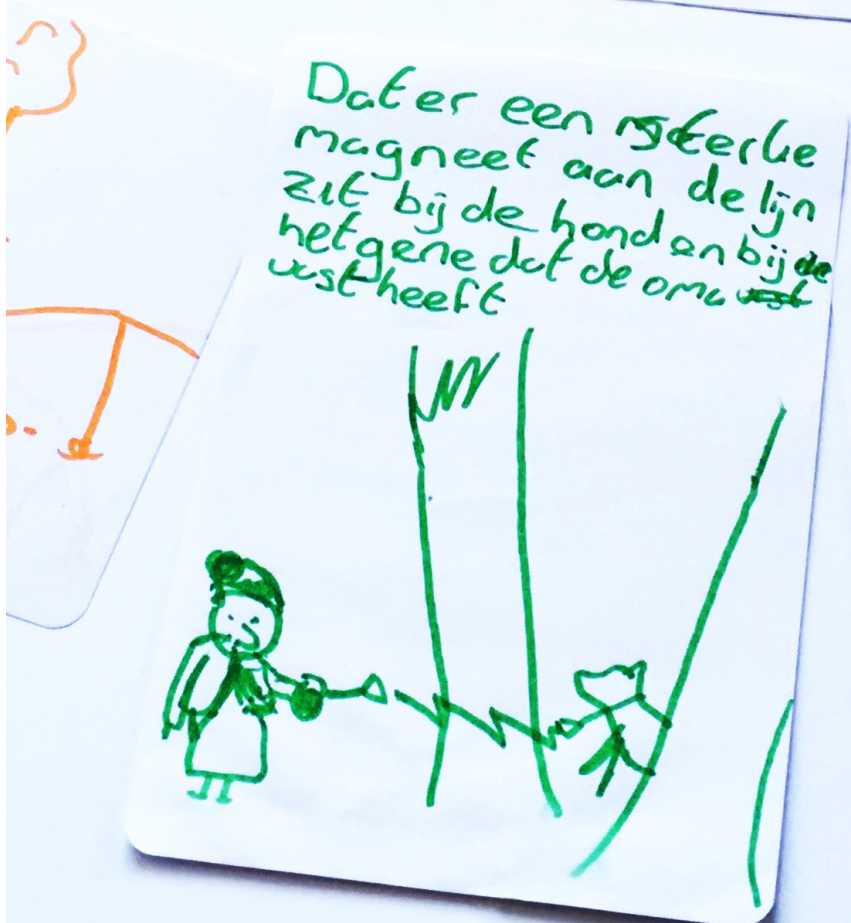 Dat er een sterke
magneet aan de lijn
zit bij de hond en bij de
hetgene dat de oma
vast heeft